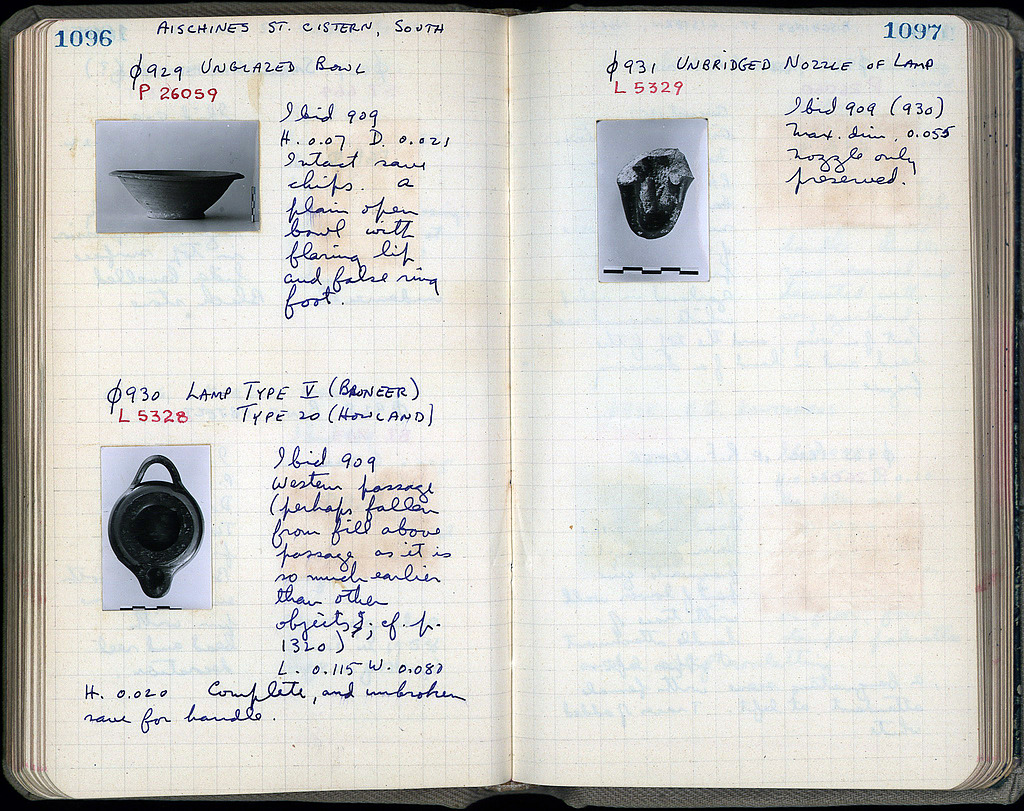 1096
AISCHINES ST. CISTERN, SOUTH
ϕ929 UNGLAZED BOWL
P 26059
Ibid 909
H. 0.07 D. 0.021
Intact save
chips. a
plain open
bowl with
flaring lip
and false ring
foot.
ϕ930 LAMP TYPE V (BRONEER)
L 5328 TYPE 20 (HOWLAND)
Ibid 909
Western passage
(perhaps fallen
from fill above
passage as it is
so much earlier
than other
objects; cf. p.
1320)
L. 0.115 W. 0.080
H. 0.020 Complete, and unbroken
save for handle.
1097
ϕ931 UNBRIDGED NOZZLE OF LAMP
L 5329
Ibid 909 (930)
Max. dim. 0.055
Nozzle only
preserved.